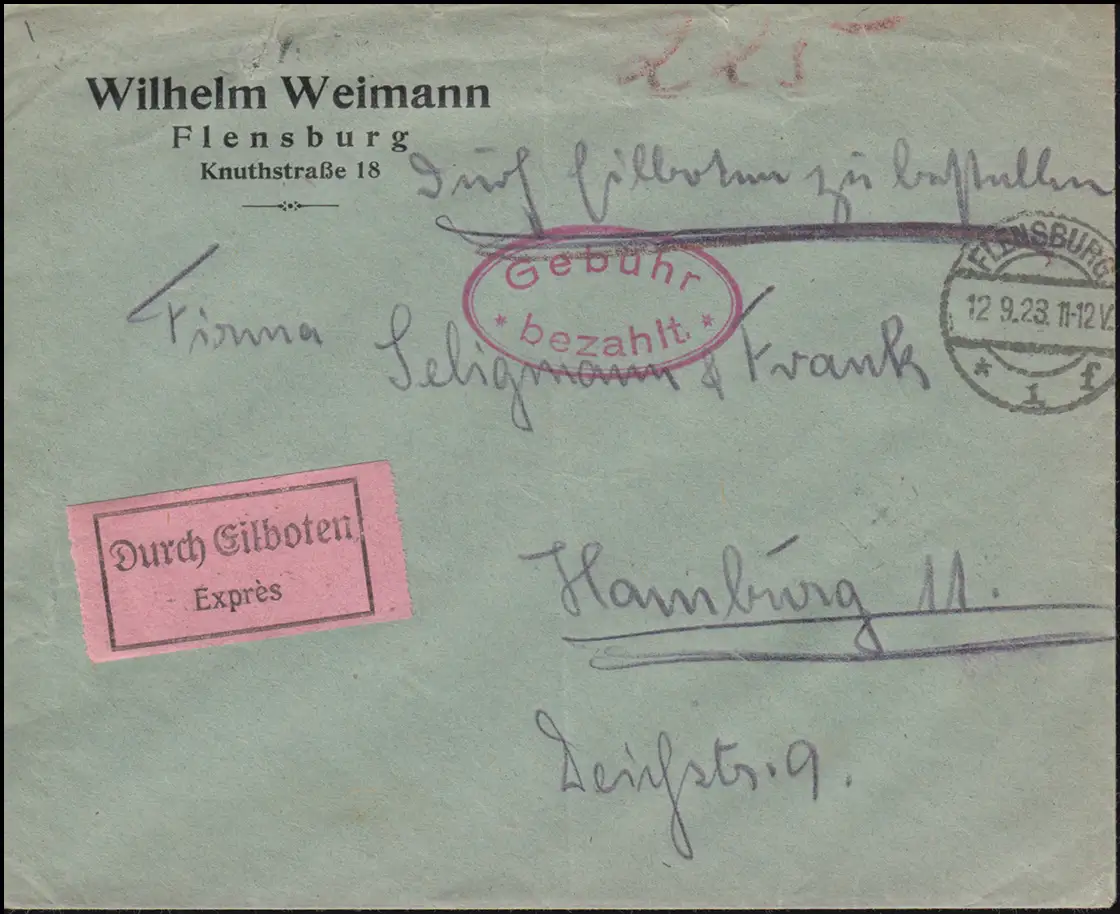 225
Wilhelm Weimann
Flensburg
Knuthstraße 18
Durch Eilboten zu bestellen
FLENSBURG
12 9.23. 11-12 V.
* 1 f
Gebühr
* bezahlt. *
Firma Seligmann & Frank
Durch Eilboten
Exprès
Hamburg 11.
Deichstr. 9.